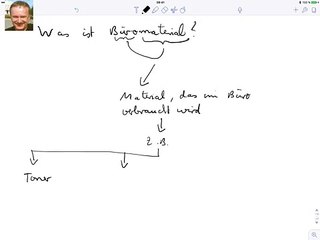 Was ist Büromaterial?
Material, das im Büro
verbraucht wird
z.B.
Toner